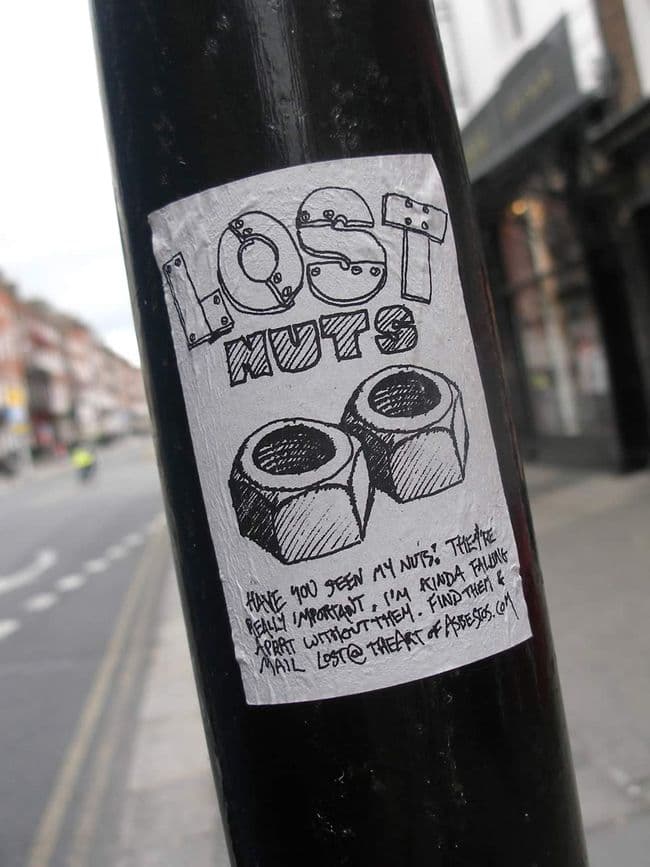 LOST
NUTS
HAVE YOU SEEN MY NUTS? THEY'RE
REALLY IMPORTANT, I'M KINDA FALLING
APART WITHOUT THEM. FIND THEM &
MAIL LOST@THEARTOFASBESTOS.COM